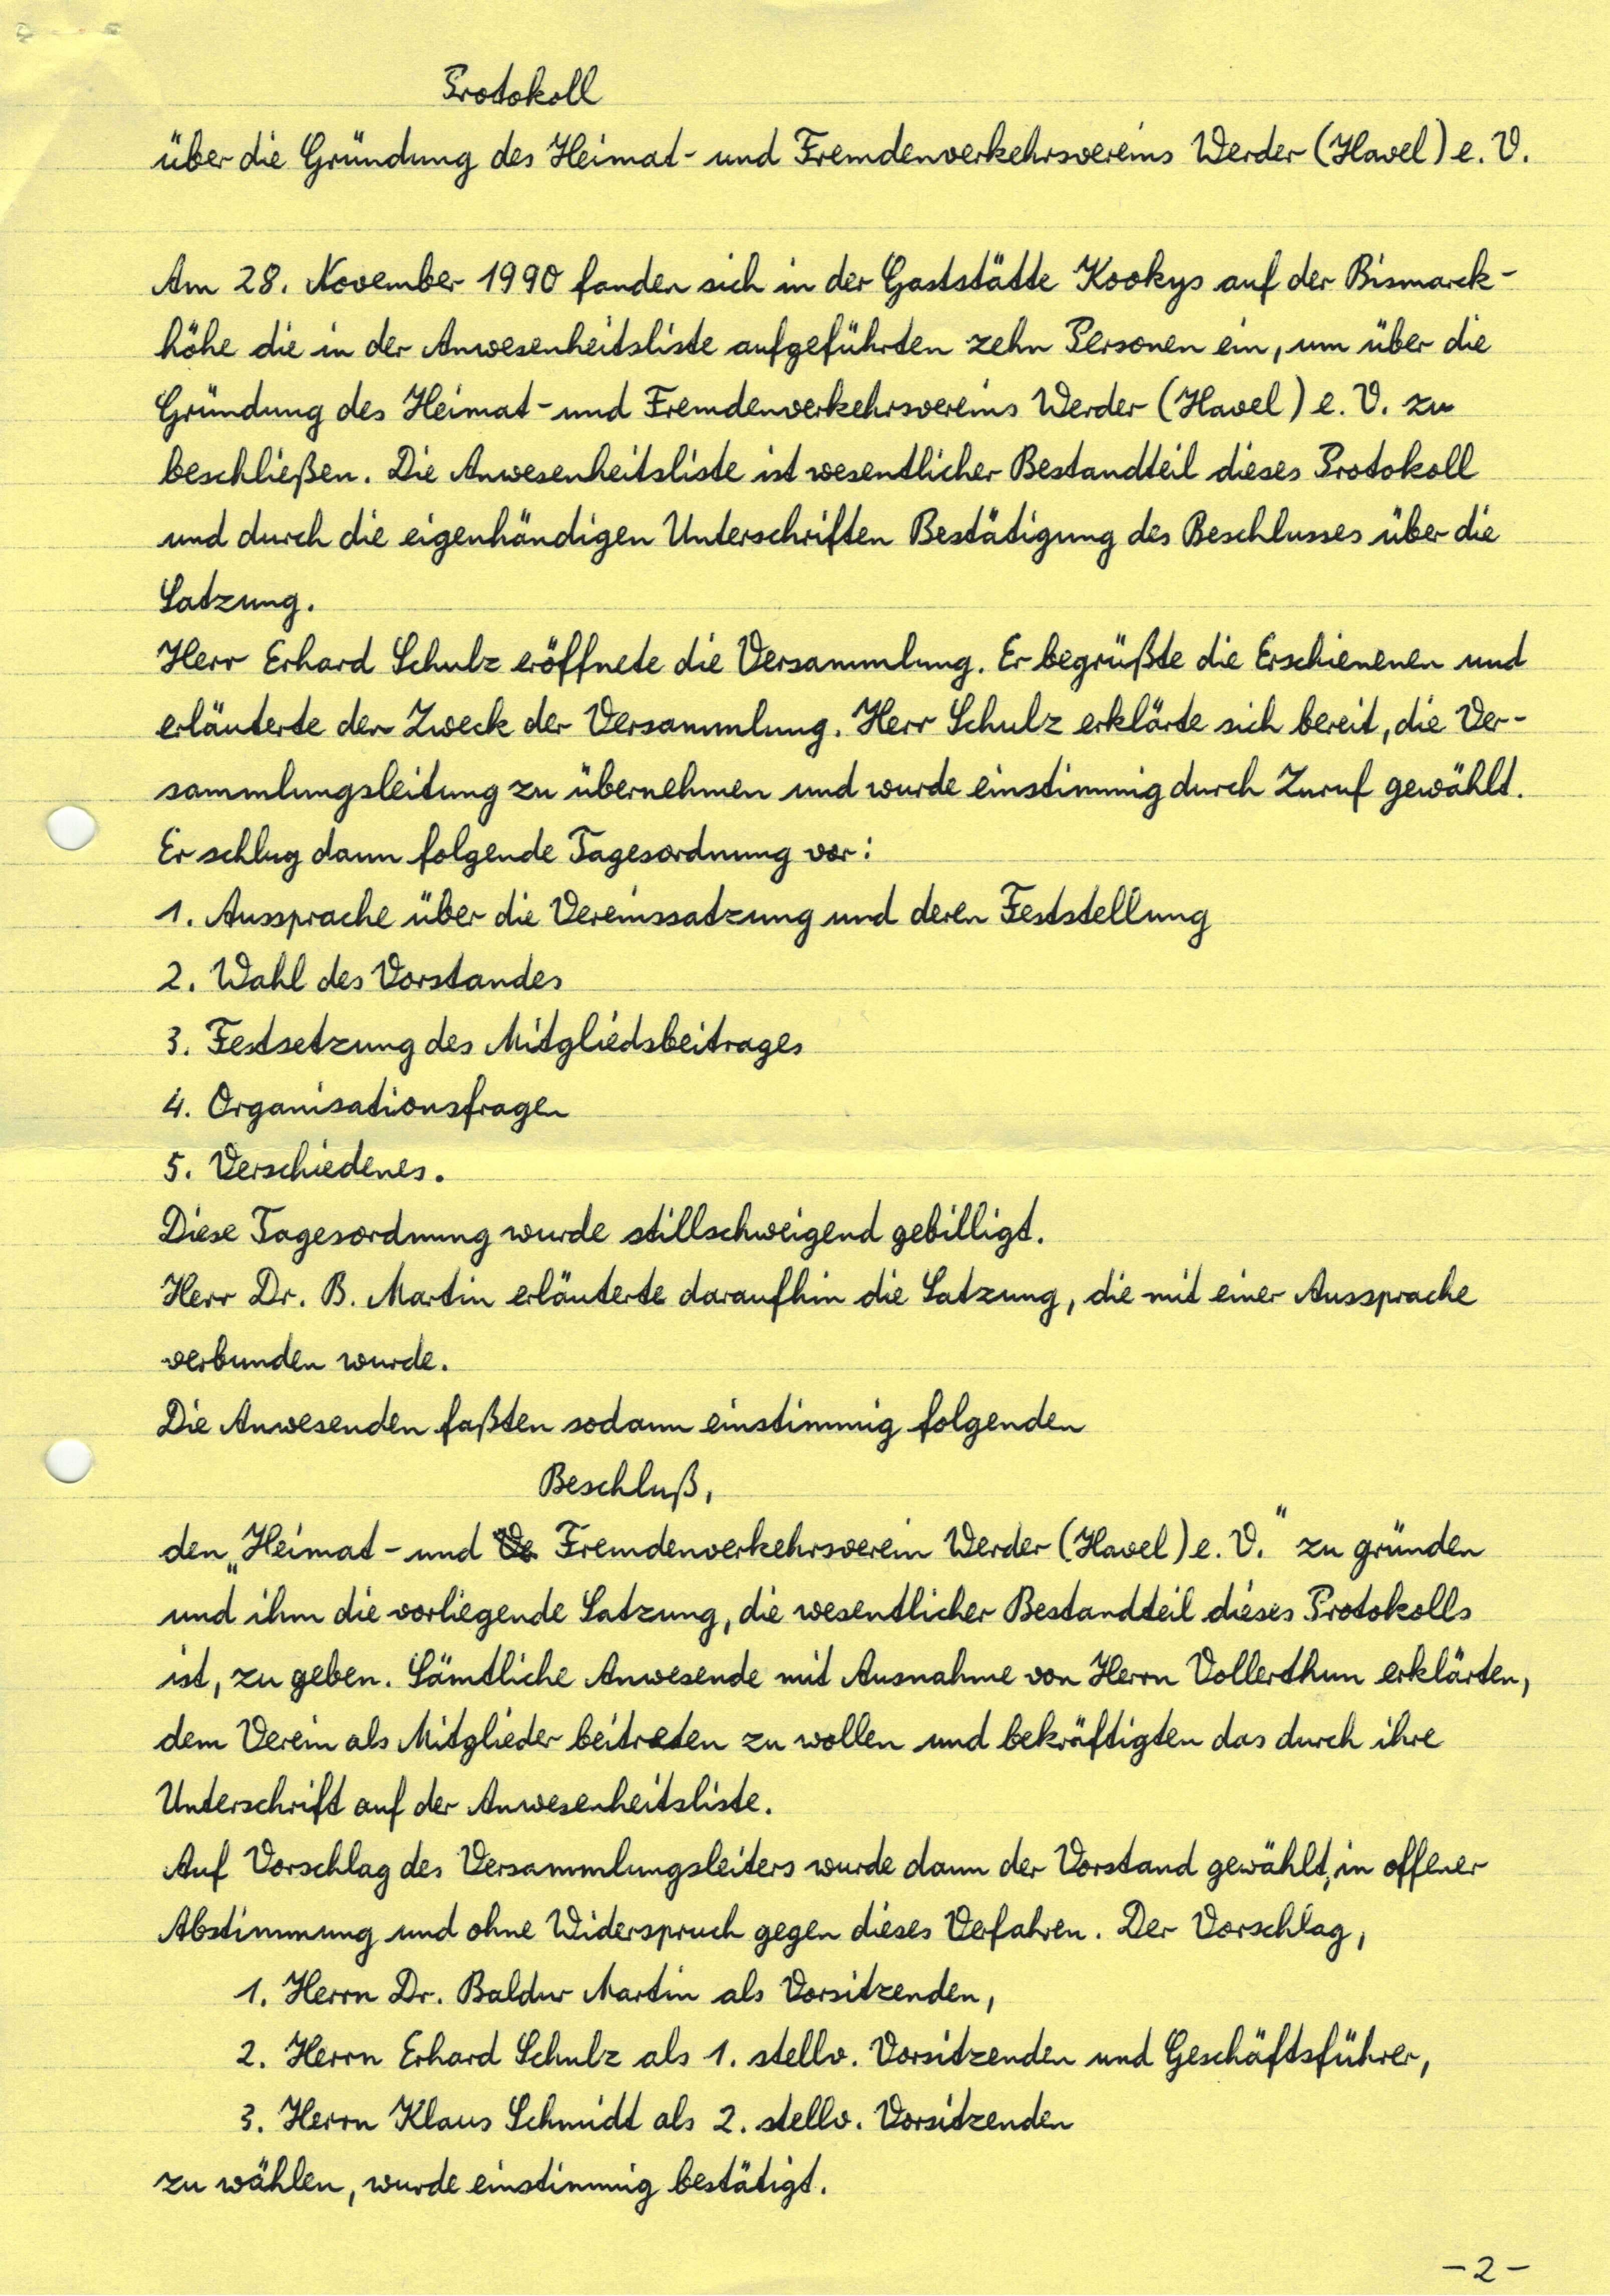 Protokoll
über die Gründung des Heimat- und Fremdenverkehrsvereins Werder (Havel) e. V.
Am 28. November 1990 fanden sich in der Gaststätte Kookys auf der Bismarck-
höhe die in der Anwesenheitsliste aufgeführten zehn Personen ein, um über die
Gründung des Heimat- und Fremdenverkehrsvereins Werder (Havel) e. V. zu
beschließen. Die Anwesenheitsliste ist wesentlicher Bestandteil dieses Protokoll
und durch die eigenhändigen Unterschriften Bestätigung des Beschlusses über die
Satzung.
Herr Erhard Schulz eröffnete die Versammlung. Er begrüßte die Erschienenen und
erläuterte den Zweck der Versammlung. Herr Schulz erklärte sich bereit, die Ver-
sammlungsleitung zu übernehmen und wurde einstimmig durch Zuruf gewählt.
Er schlug dann folgende Tagesordnung vor:
1. Aussprache über die Vereinssatzung und deren Feststellung
2. Wahl des Vorstandes
3. Festsetzung des Mitgliedsbeitrages
4. Organisationsfragen
5. Verschiedenes.
Diese Tagesordnung wurde stillschweigend gebilligt.
Herr Dr. B. Martin erläuterte daraufhin die Satzung, die mit einer Aussprache
verbunden wurde.
Die Anwesenden faßten sodann einstimmig folgenden
Beschluß,
den „Heimat- und Ve Fremdenverkehrsverein Werder (Havel) e. V." zu gründen
und ihm die vorliegende Satzung, die wesentlicher Bestandteil dieses Protokolls
ist, zu geben. Sämtliche Anwesende mit Ausnahme von Herrn Vollerthun erklärten,
dem Verein als Mitglieder beitreten zu wollen und bekräftigten das durch ihre
Unterschrift auf der Anwesenheitsliste.
Auf Vorschlag des Versammlungsleiters wurde dann der Vorstand gewählt, in offener
Abstimmung und ohne Widerspruch gegen dieses Verfahren. Der Vorschlag,
1. Herrn Dr. Baldur Martin als Vorsitzenden,
2. Herrn Erhard Schulz als 1. stellv. Vorsitzenden und Geschäftsführer,
3. Herrn Klaus Schmidt als 2. stellv. Vorsitzenden
zu wählen, wurde einstimmig bestätigt.
-2-